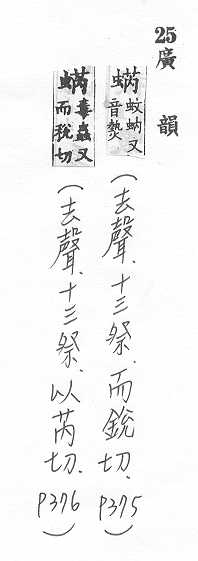 25廣韻
蜹蚊蚋又音爇(去聲.十三祭.而銳切.P375)
蜹毒蟲又而稅切(去聲.十三祭.以芮切.P376)